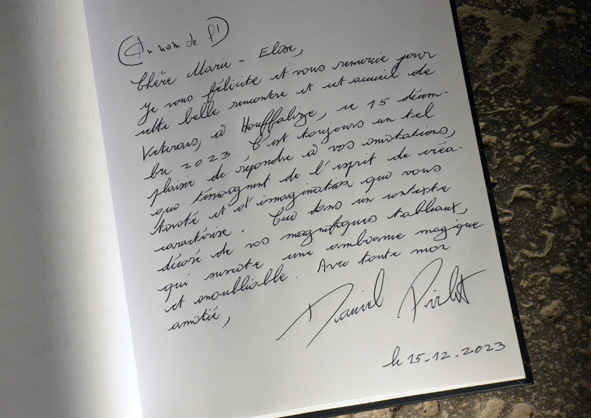 (Au nom de PI)
Chère Marie-Elise,
Je vous félicite et vous remercie pour
cette belle rencontre et cet accueil de
Veterans, à Houffalize, ce 15 décem-
bre 2023. C'est toujours un tel
plaisir de répondre à vos invitations,
qui témoignent de l'esprit de créa-
tivité et d'imagination que vous
caractérise. Ceci dans un contexte
décoré de vos magnifiques tableaux,
qui suscite une ambiance magique
et inoubliable. Avec toute mon
amitié,
Daniel
le 15-12-2023